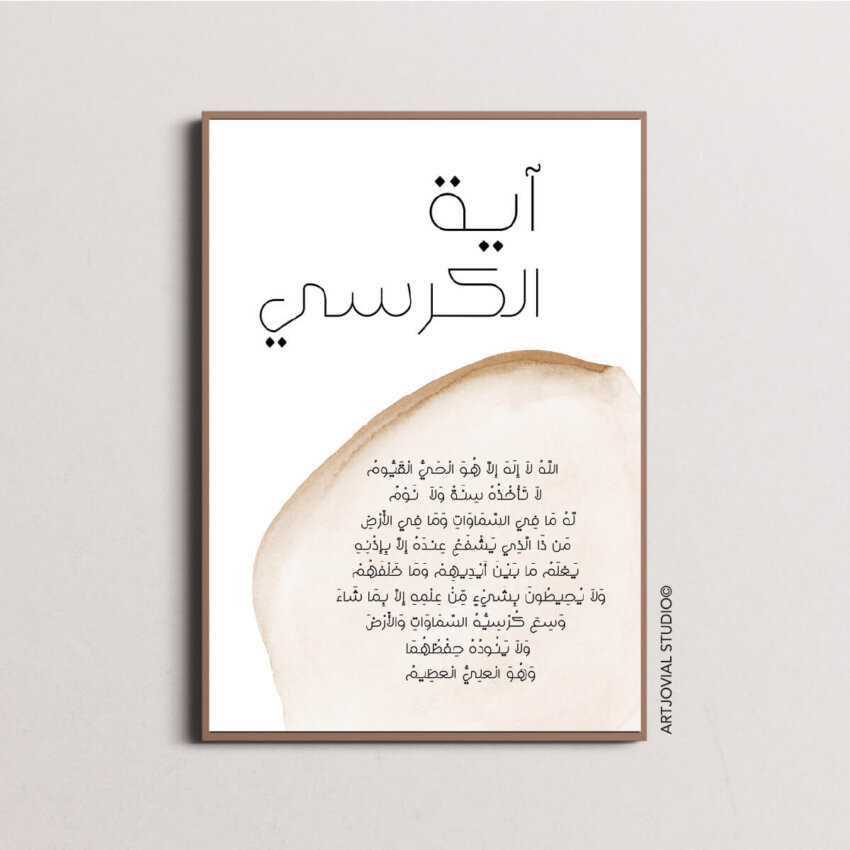 آية
الكرسي
اللّهُ لاَ إِلَهَ إِلاَّ هُوَ الْحَيُّ الْقَيُّومُ
لاَ تَأْخُذُهُ سِنَةٌ وَلاَ نَوْمٌ
لَّهُ مَا فِي السَّمَاوَاتِ وَمَا فِي الأَرْضِ
مَن ذَا الَّذِي يَشْفَعُ عِنْدَهُ إِلاَّ بِإِذْنِهِ
يَعْلَمُ مَا بَيْنَ أَيْدِيهِمْ وَمَا خَلْفَهُمْ
وَلاَ يُحِيطُونَ بِشَيْءٍ مِّنْ عِلْمِهِ إِلاَّ بِمَا شَاءَ
وَسِعَ كُرْسِيُّهُ السَّمَاوَاتِ وَالأَرْضَ
وَلاَ يَئُودُهُ حِفْظُهُمَا
وَهُوَ الْعَلِيُّ الْعَظِيمُ
ARTJOVIAL STUDIO©